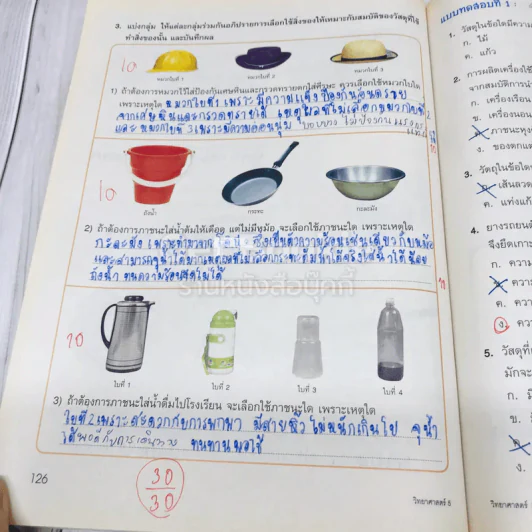 3. แบ่งกลุ่ม ให้แต่ละกลุ่มร่วมกันอภิปรายการเลือกใช้สิ่งของให้เหมาะกับสมบัติของวัสดุที่ใช้
ทำสิ่งของนั้น และบันทึกผล
10
หมวกใบที่ 1 หมวกใบที่ 2 หมวกใบที่ 3
1) ถ้าต้องการหมวกไว้ใส่ป้องกันเศษหินและกรวดทรายตกใส่ศีรษะ ควรเลือกใช้หมวกใบใด
เพราะเหตุใด หมวกใบที่ 1 เพราะมีความแข็ง ป้องกันอันตราย
จากเศษหินและกรวดทรายได้ เหตุผลที่ไม่เลือกหมวกใบที่ 2
และ หมวกใบที่ 3 เพราะมีความอ่อนนุ่ม
10
ถังน้ำ กระทะ กะละมัง
2) ถ้าต้องการภาชนะใส่น้ำต้มให้เดือด แต่ไม่มีหม้อ จะเลือกใช้ภาชนะใด เพราะเหตุใด
กะละมัง เพราะทำมาจากโลหะ ซึ่งเป็นตัวความร้อนเช่นเดียวกับหม้อ
และสามารถจุน้ำได้มาก เหตุผลที่ไม่เลือกกระทะ
ถังน้ำ ทนความร้อนสูงไม่ได้
ร้านหนังสือนุ๊กกี้
10
ใบที่ 1 ใบที่ 2 ใบที่ 3 ใบที่ 4
3) ถ้าต้องการภาชนะใส่น้ำดื่มไปโรงเรียน จะเลือกใช้ภาชนะใด เพราะเหตุใด
ใบที่ 2 เพราะสะดวกกับการพกพา มีสายหิ้ว ไม่หนักเกินไป จุน้ำ
ได้พอดีกับการเดินทาง ทนทาน
126
30
30
วิทยาศาสตร์ 5
แบบทดสอบที่ 1
1. วัสดุในข้อใดมีความ
ก. ไม้
ค. แก้ว
2. การผลิตเครื่องใช้
จากสมบัติการนำ
ก. เครื่องเรือน
ข. เครื่องนอน
ค. ภาชนะหุง
ง. ของตกแต่
3. วัสดุในข้อใด
ก. เส้นลวด
ค. แท่งแก้
4. ยางรถยนต์
จึงยึดเกาะ
ก. ความ
ข. ความ
ค. ความ
ง. ควา
5. วัสดุที่
มักจะ
ก. มี
ข. มี
ค.
ง.
วิทยาศาสตร์